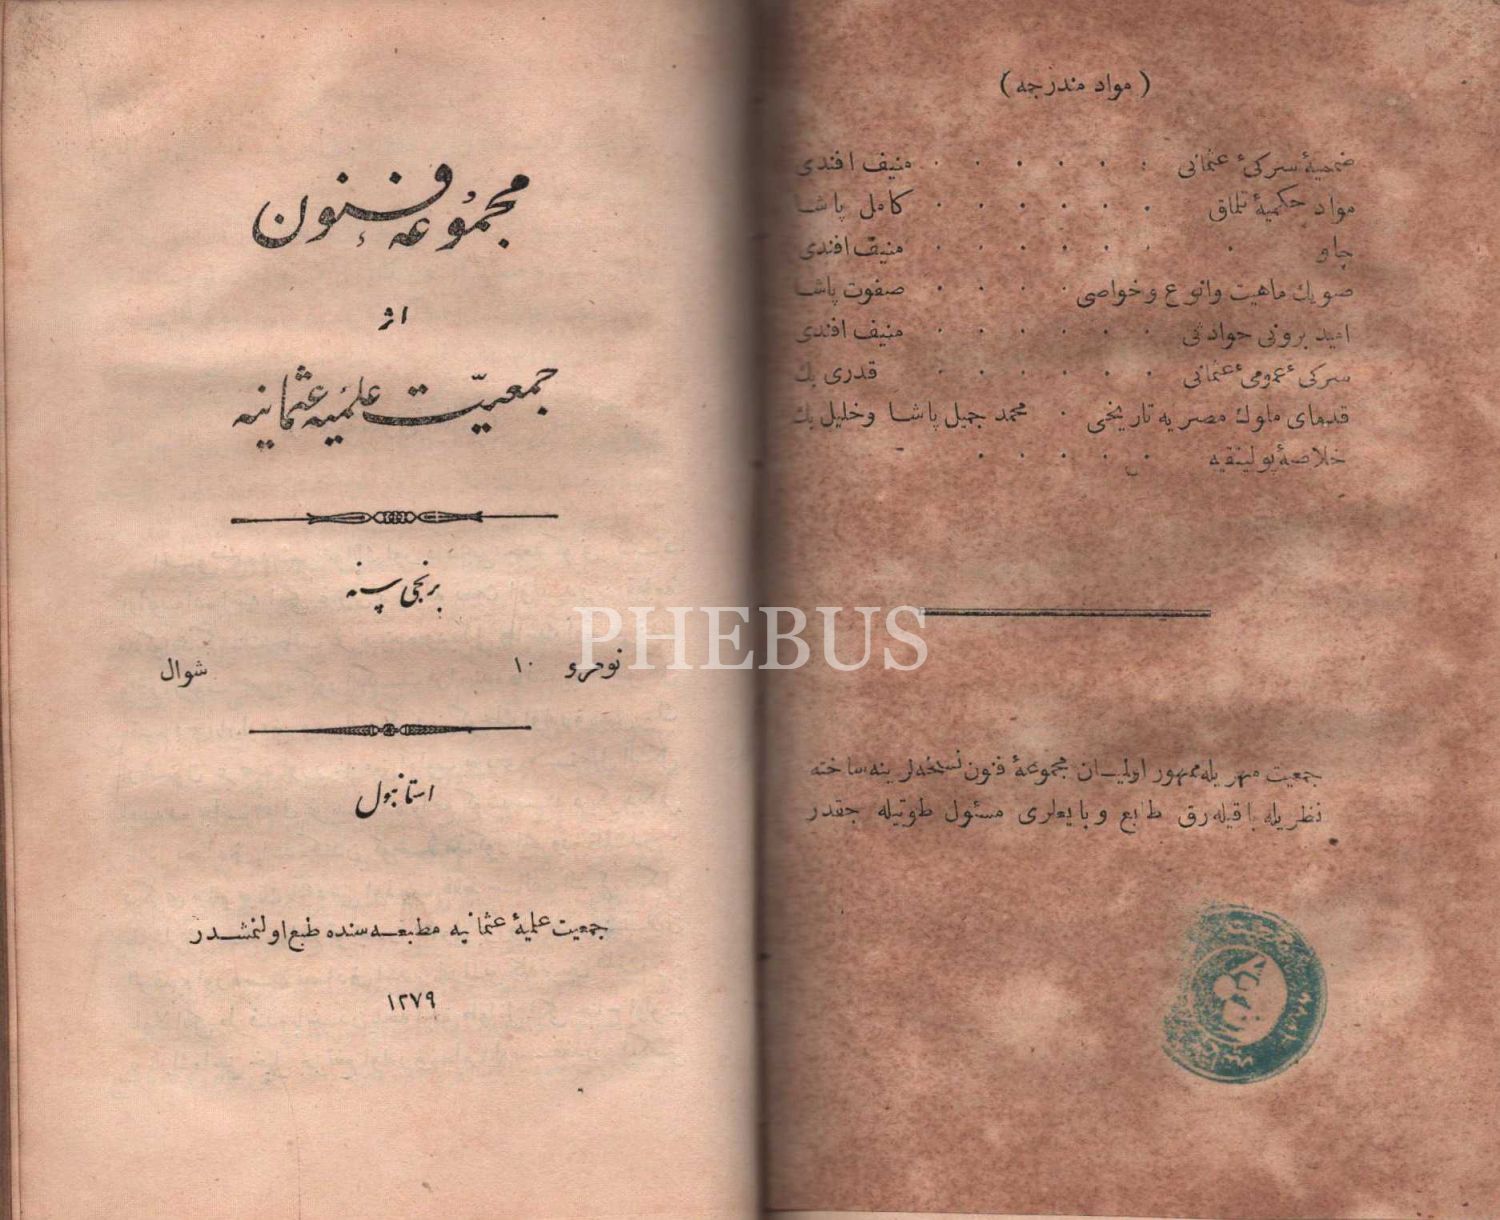 ( مواد مندرجه )
ضميۀ سركئ عثمانى منيف افندى
مواد حكميۀ تلماق كامل پاشا
چاو منيف افندى
صويك ماهيت وانوع وخواصى صفوت پاشا
اميد برونى حوادثى منيف افندى
سركئ عمومئ عثمانى قدرى بك
قدماى ملوك مصريه تاريخى محمد جميل پاشا وخليل بك
خلاصۀ پولیتقيه
جمعيت مهريله ممهور اوليان مجموعۀ فنون نسخه لرينه ساخته
نظريله باقيله رق طابع وبايعلرى مسئول طوتيله جقدر
مجموعۀ فنون
اثر
جمعيت علميۀ عثمانيه
برنجى سنه
نومرو ١٠ شوال
استانبول
جمعيت علميۀ عثمانيه مطبعه سنده طبع اولنمشدر
١٢٧٩
PHEBUS